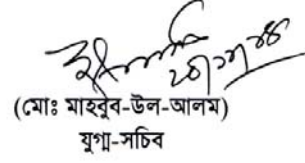 (মোঃ মাহবুব-উল-আলম)
যুগ্ম-সচিব